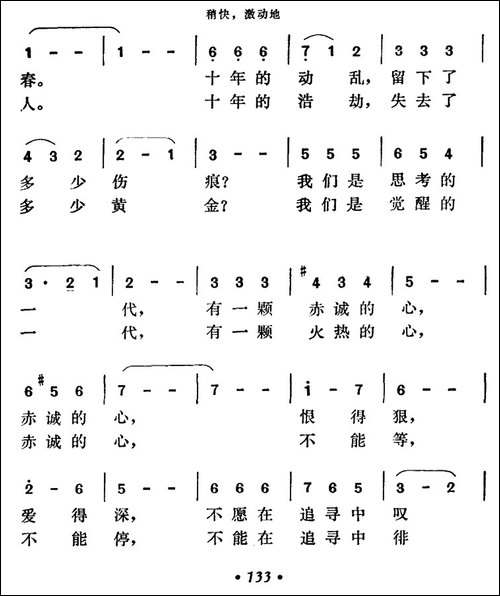 稍快，激动地
1 - - | 1 - - | 6 6 6 | 7 1 2 | 3 3 3 |
春。 十年的 动 乱，留下了
人。 十年的 浩 劫，失去了
4 3 2 | 2 - 1 | 3 - - | 5 5 5 | 6 5 4 |
多 少 伤 痕？ 我们是 思考的
多 少 黄 金？ 我们是 觉醒的
3 · 2 1 | 2 - - | 3 3 3 | #4 3 4 | 5 - - |
一 代， 有一颗 赤诚的 心，
一 代， 有一颗 火热的 心，
6 #5 6 | 7 - - | 7 - - | 1 - 7 | 6 - - |
赤诚的 心， 恨 得 狠，
赤诚的 心， 不 能 等，
2 - 6 | 5 - - | 6 6 6 | 7 6 5 | 3 - 2 |
爱 得 深， 不愿在 追寻中 叹
不 能 停， 不能在 追寻中 徘
· 133 ·